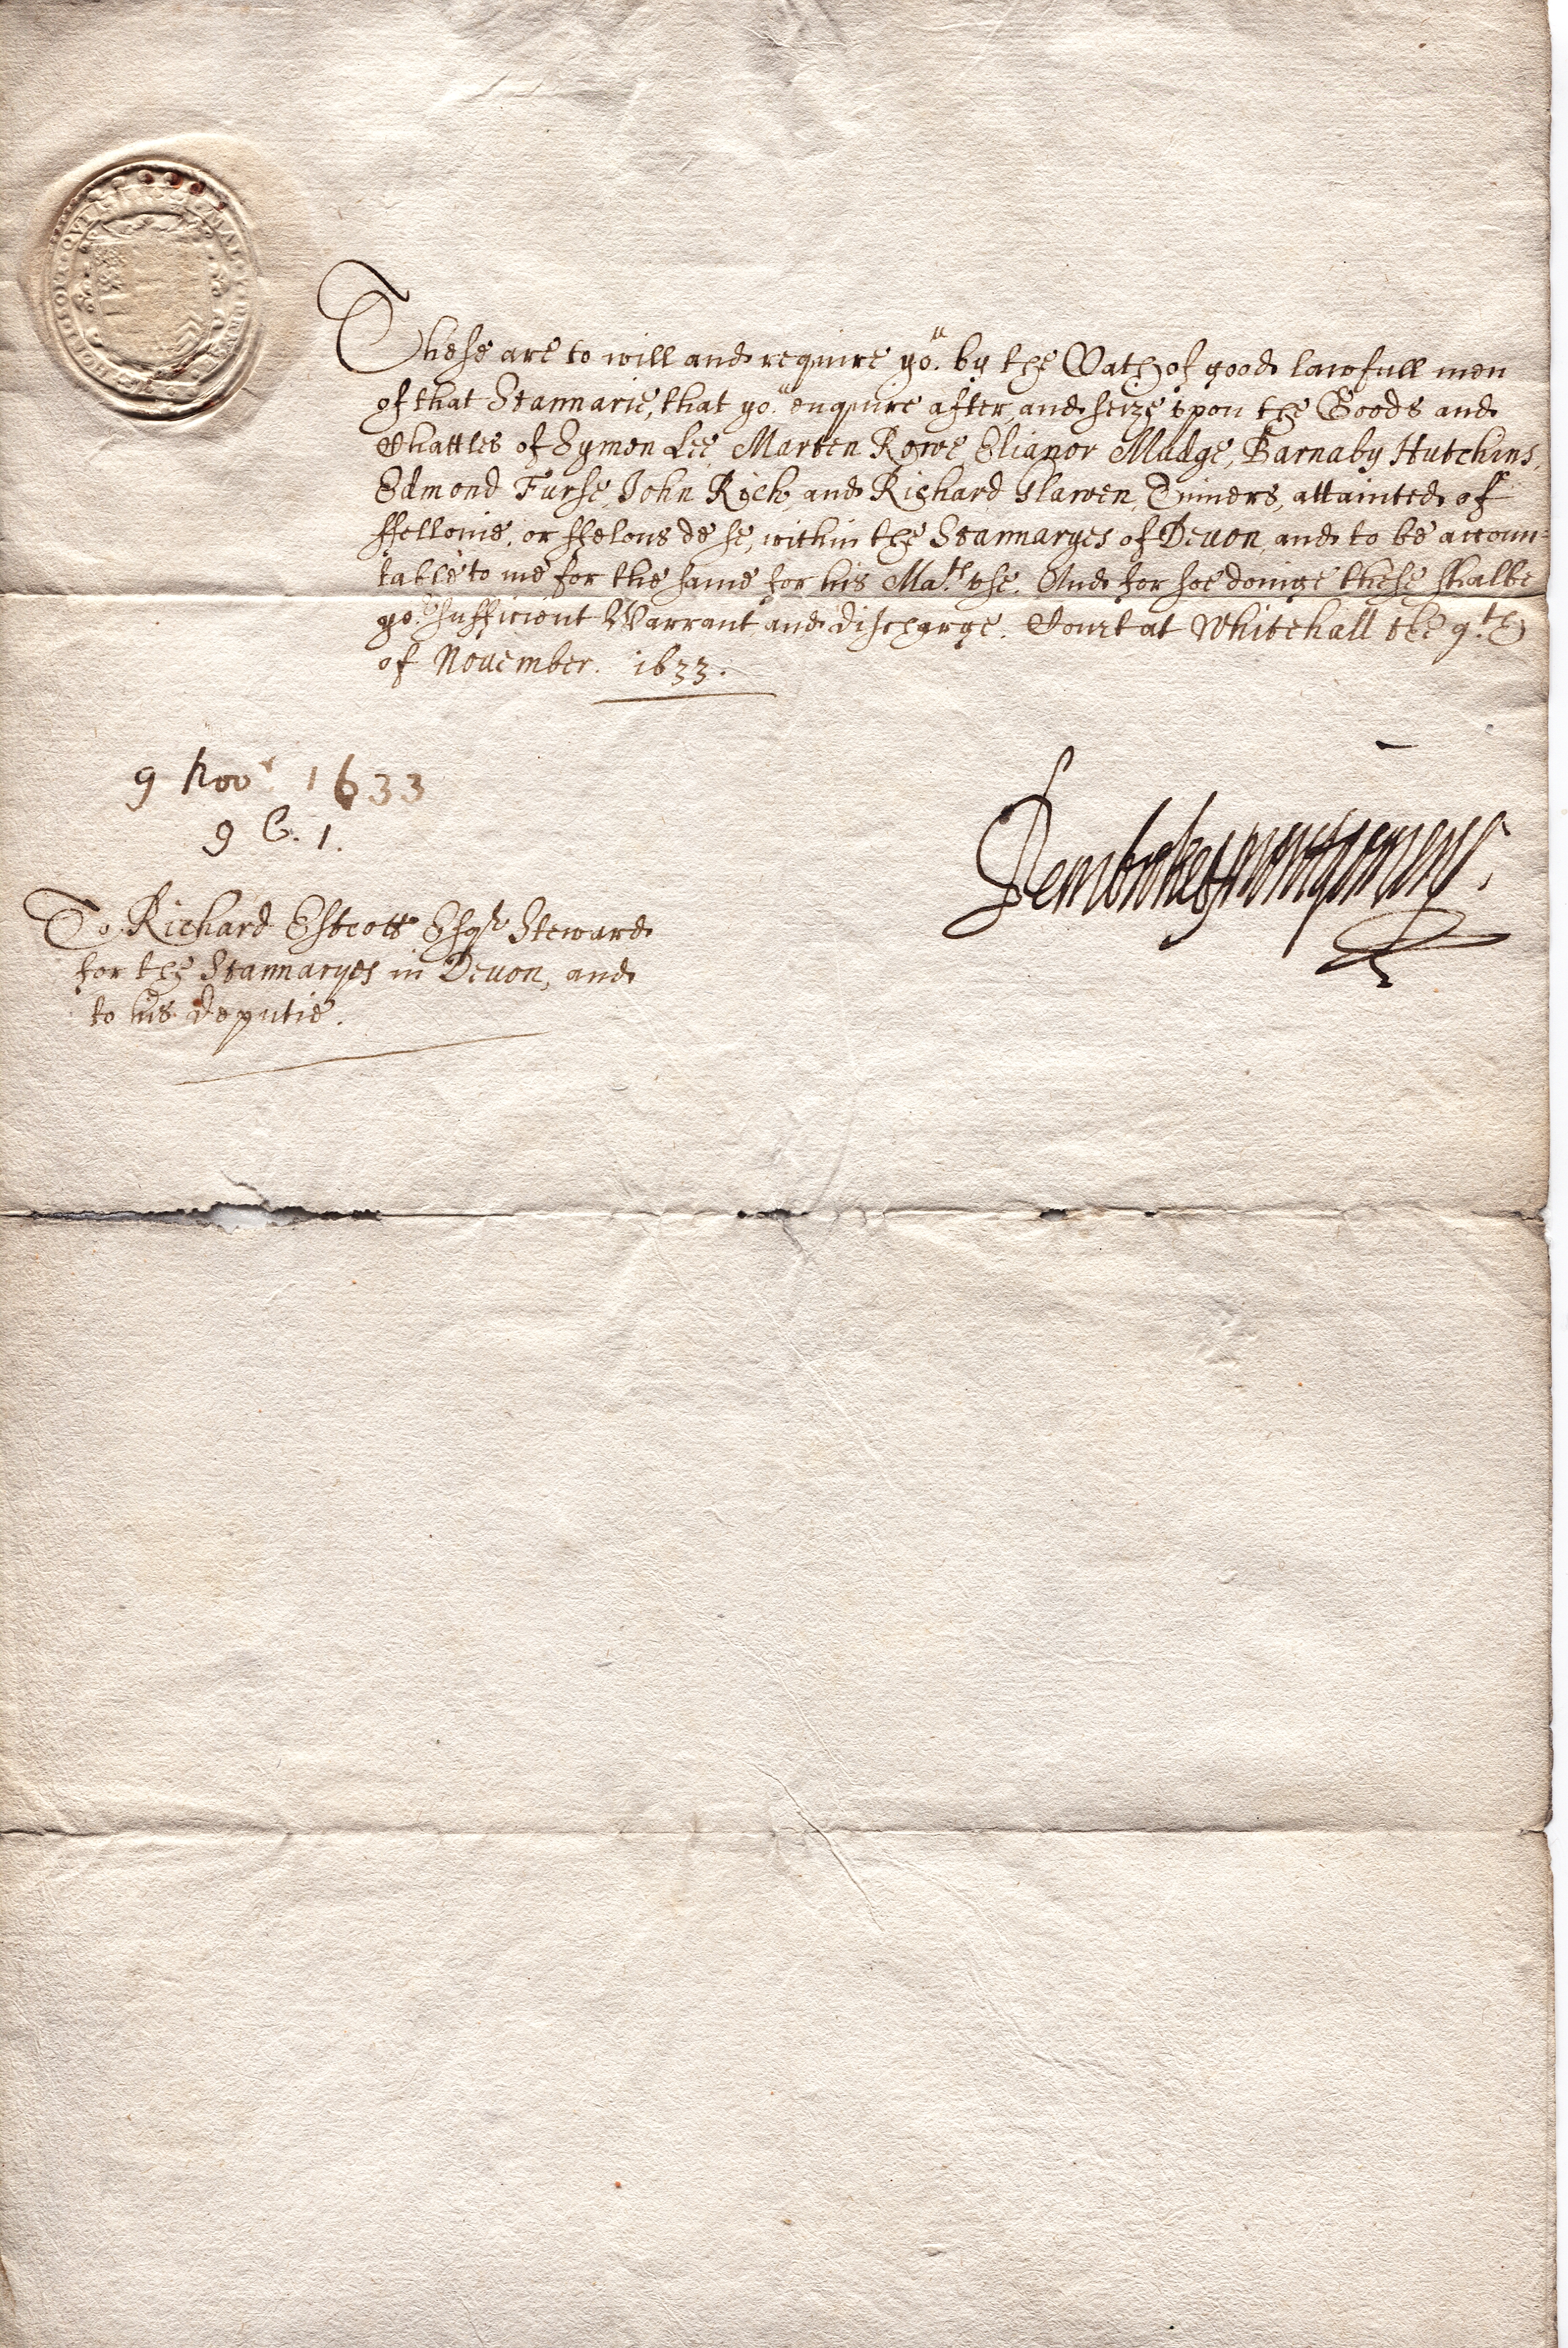 These are to will and require yo.u by the Oath of good lawfull men
of that Stannarie, that yo.u enquire after, and seize vpon the Goods and
Chattles of Symon Lee, Marten Rowe, Elianor Mudge, Barnaby Hutchins,
Edmond Furse, John Rich, and Richard Glawen, Tinners, attainted of
ffellonie, or ffelons de se, within the Stannaryes of Deuon, and to be accoun=
table to me for the same for his Ma.ts vse. And for soe doinge these shalbe
yo.r sufficient Warrant and discharge. Court at Whitehall the 9.th
of Nouember. 1633.
9 Novr 1633
9 C. 1.
Pembroke & Montgomery
To Richard Estcott Esqr Steward
for the Stannaryes in Deuon, and
to his deputie.
HONI SOIT QVI MAL Y PENSE